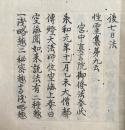 後七日法
性霊集第九云
宮中真言院御修法奏状
承和元年十一月乙未大僧都
傳燈大法師位空海上奏
空海聞如来説法有二種趣
一浅略趣二秘密趣言浅略